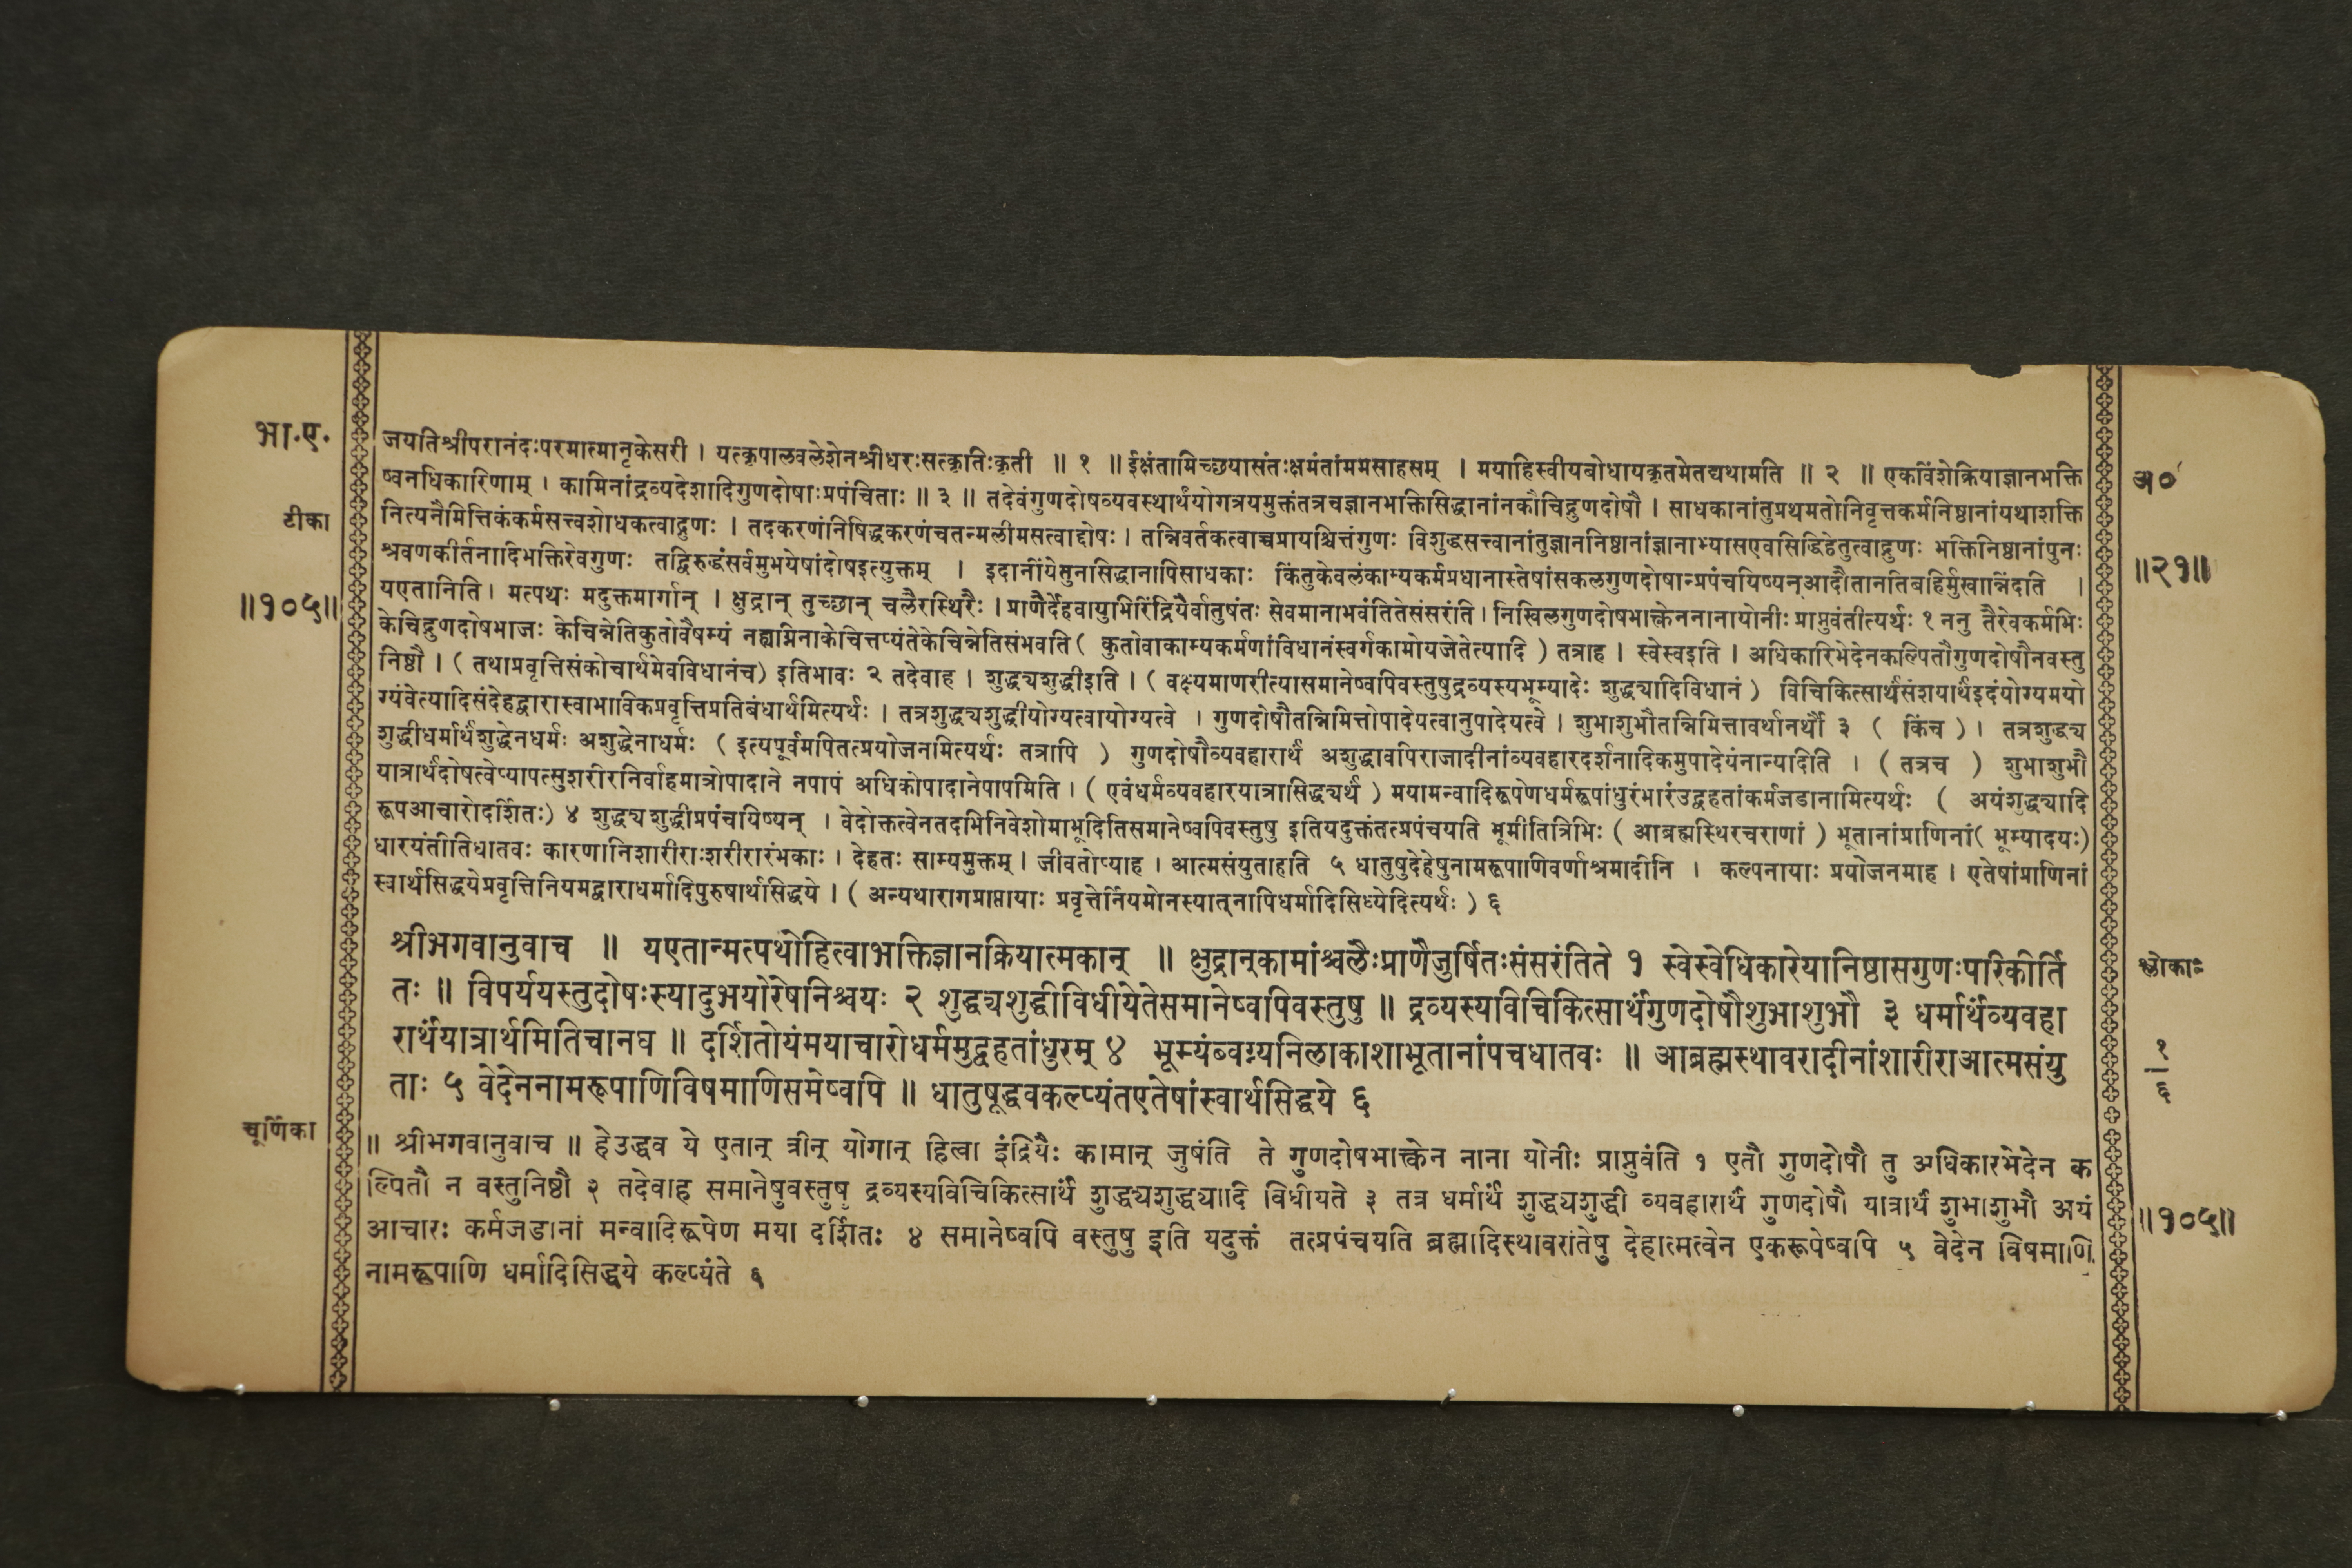 भा.ए.
टीका
॥१०५॥
जयतिश्रीपरानंदःपरमात्मानृकेसरी । यत्कृपालवलेशेनश्रीधरःसत्कृतिःकृती ॥ १ ॥ ईक्षंतामिच्छयासंतःक्षमंतांममसाहसम् । मयाहिस्वीयबोधायकृतमेतद्यथामति ॥ २ ॥ एकविंशेक्रियाज्ञानभक्ति
ष्वनधिकारिणाम् । कामिनांद्रव्यदेशादिगुणदोषाःप्रपंचिताः ॥ ३ ॥ तदेवंगुणदोषव्यवस्थार्थंयोगत्रयमुक्तंतत्रचज्ञानभक्तिसिद्धानांनकौचिद्गुणदोषौ । साधकानांतुप्रथमतोनिवृत्तकर्मनिष्ठानांयथाशक्ति
नित्यनैमित्तिकंकर्मसत्त्वशोधकत्वाद्गुणः । तदकरणंनिषिद्धकरणंचतन्मलीमसत्वाद्दोषः । तन्निवर्तकत्वाच्चप्रायश्चित्तंगुणः विशुद्धसत्त्वानांतुज्ञाननिष्ठानांज्ञानाभ्यासएवसिद्धिहेतुत्वाद्गुणः भक्तिनिष्ठानांपुनः
श्रवणकीर्तनादिभक्तिरेवगुणः तद्विरुद्धंसर्वमुभयेषांदोषइत्युक्तम् । इदानींयेतुनसिद्धानापिसाधकाः किंतुकेवलंकाम्यकर्मप्रधानास्तेषांसकलगुणदोषान्प्रपंचयिष्यन्आदौतानतिबहिर्मुखान्निंदति ।
यएतानिति । मत्पथः मदुक्तमार्गान् । क्षुद्रान् तुच्छान् चलैरस्थिरैः । प्राणैर्देहवायुभिरिंद्रियैर्वातुषंतः सेवमानाभवंतितेसंसरंति । निखिलगुणदोषभाक्त्वेननानायोनीः प्राप्नुवंतीत्यर्थः १ ननु तैरेवकर्मभिः
केचिद्गुणदोषभाजः केचिन्नेतिकुतोवैषम्यं नह्यग्निनाकेचित्तप्यंतेकेचिन्नेतिसंभवति ( कुतोवाकाम्यकर्मणांविधानंस्वर्गकामोयजेतेत्यादि ) तत्राह । स्वेस्वइति । अधिकारिभेदेनकल्पितौगुणदोषौनवस्तु
निष्ठौ । ( तथाप्रवृत्तिसंकोचार्थमेवविधानंच) इतिभावः २ तदेवाह । शुद्ध्यशुद्धीइति । ( वक्ष्यमाणरीत्यासमानेष्वपिवस्तुषुद्रव्यस्यभूम्यादेः शुद्ध्यादिविधानं ) विचिकित्सार्थंसंशयार्थंइदंयोग्यमयो
ग्यंवेत्यादिसंदेहद्वारास्वाभाविकप्रवृत्तिप्रतिबंधार्थमित्यर्थः । तत्रशुद्ध्यशुद्धीयोग्यत्वायोग्यत्वे । गुणदोषौतन्निमित्तोपादेयत्वानुपादेयत्वे । शुभाशुभौतन्निमित्तावर्थानर्थौ ३ ( किंच ) । तत्रशुद्ध्य
शुद्धीधर्मार्थंशुद्धेनधर्मः अशुद्धेनाधर्मः ( इत्यपूर्वमपितत्प्रयोजनमित्यर्थः तत्रापि ) गुणदोषौव्यवहारार्थं अशुद्धावपिराजादीनांव्यवहारदर्शनादिकमुपादेयंनान्यदिति । ( तत्रच ) शुभाशुभौ
यात्रार्थंदोषत्वेप्यापत्सुशरीरनिर्वाहमात्रोपादाने नपापं अधिकोपादानेपापमिति । ( एवंधर्मव्यवहारयात्रासिद्ध्यर्थं ) मयामन्वादिरूपेणधर्मरूपांधुरंभारंउद्वहतांकर्मजडानामित्यर्थः ( अयंशुद्ध्यादि
रूपआचारोदर्शितः) ४ शुद्ध्यशुद्धीप्रपंचयिष्यन् । वेदोक्तत्वेनतदभिनिवेशोमाभूदितिसमानेष्वपिवस्तुषु इतियदुक्तंतत्प्रपंचयति भूमीतित्रिभिः ( आब्रह्मस्थिरचराणां ) भूतानांप्राणिनां( भूम्यादयः)
धारयंतीतिधातवः कारणानिशारीराःशरीरारंभकाः । देहतः साम्यमुक्तम् । जीवतोप्याह । आत्मसंयुताइति ५ धातुषुदेहेषुनामरूपाणिवर्णाश्रमादीनि । कल्पनायाः प्रयोजनमाह । एतेषांप्राणिनां
स्वार्थसिद्धयेप्रवृत्तिनियमद्वाराधर्मादिपुरुषार्थसिद्धये । ( अन्यथारागप्राप्तायाः प्रवृत्तेर्नियमोनस्यात्नापिधर्मादिसिध्येदित्यर्थः ) ६
श्रीभगवानुवाच ॥ यएतान्मत्पथोहित्वाभक्तिज्ञानक्रियात्मकान् ॥ क्षुद्रान्कामांश्चलैःप्राणैर्जुषंतःसंसरंतिते १ स्वेस्वेधिकारेयानिष्ठासगुणःपरिकीर्ति
तः ॥ विपर्ययस्तुदोषःस्यादुभयोरेषनिश्चयः २ शुद्ध्यशुद्धीविधीयेतेसमानेष्वपिवस्तुषु ॥ द्रव्यस्यविचिकित्सार्थंगुणदोषौशुभाशुभौ ३ धर्मार्थंव्यवहा
रार्थंयात्रार्थमितिचानघ ॥ दर्शितोयंमयाचारोधर्ममुद्वहतांधुरम् ४ भूम्यंब्वग्न्यनिलाकाशाभूतानांपचधातवः ॥ आब्रह्मस्थावरादीनांशारीराआत्मसंयु
ताः ५ वेदेननामरूपाणिविषमाणिसमेष्वपि ॥ धातुषूद्धवकल्प्यंतएतेषांस्वार्थसिद्धये ६
चूर्णिका
॥ श्रीभगवानुवाच ॥ हेउद्धव ये एतान् त्रीन् योगान् हित्वा इंद्रियैः कामान् जुषंति ते गुणदोषभाक्त्वेन नाना योनीः प्राप्नुवंति १ एतौ गुणदोषौ तु अधिकारभेदेन क
ल्पितौ न वस्तुनिष्ठौ २ तदेवाह समानेषुवस्तुषु द्रव्यस्यविचिकित्सार्थं शुद्ध्यशुद्ध्यादि विधीयते ३ तत्र धर्मार्थं शुद्ध्यशुद्धी व्यवहारार्थं गुणदोषौ यात्रार्थं शुभाशुभौ अयं
आचारः कर्मजडानां मन्वादिरूपेण मया दर्शितः ४ समानेष्वपि वस्तुषु इति यदुक्तं तत्प्रपंचयति ब्रह्मादिस्थावरांतेषु देहात्मत्वेन एकरूपेष्वपि ५ वेदेन विषमाणि
नामरूपाणि धर्मादिसिद्धये कल्प्यंते ६
अ०
॥२१॥
श्लोकाः
१
६
॥१०५॥